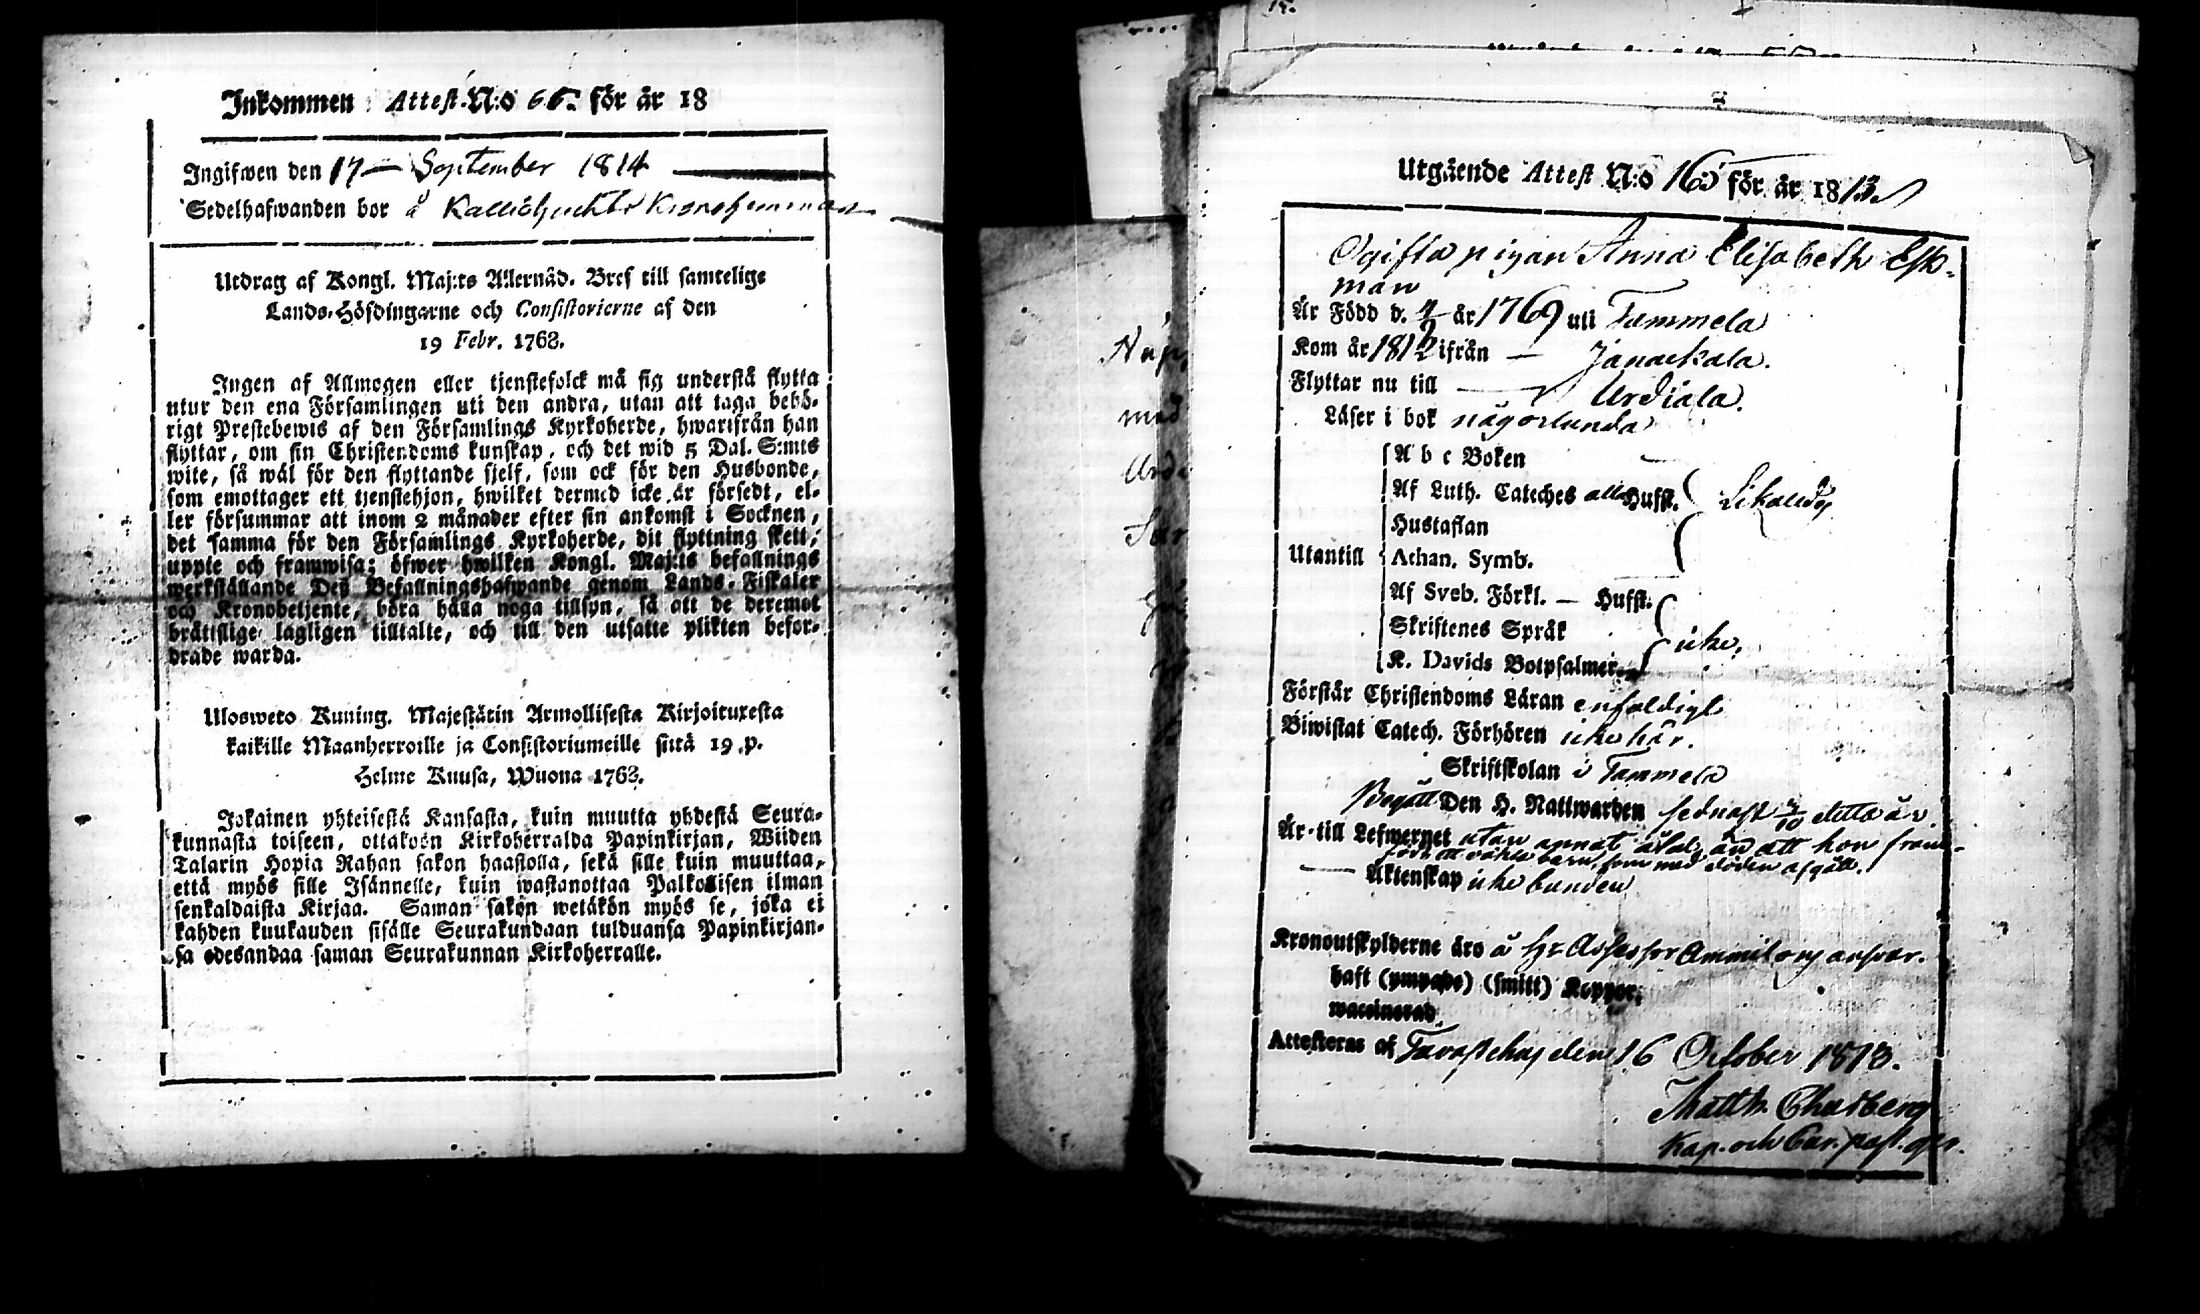 Inkommen Attest. N:o 66. för år 18
Ingifwen den 17 — September 1814
Sedelhafwanden bor å
Utdrag af Kongl. Maj:ts Allernåd. Bref till samtelige
Lands-Höfdingarne och Consistorierne af den
19 Febr. 1763.
Ingen af Allmogen eller tjenstefolck må sig understå flytta
utur den ena Församlingen uti den andra, utan att taga behö-
rigt Prestebewis af den Församlings Kyrkoherde, hwarifrån han
flyttar, om sin Christendoms kunskap, och det wid 5 Dal. S:mts
wite, så wäl för den flyttande sjelf, som ock för den Husbonde,
som emottager ett tjenstehjon, hwilket dermed icke är försedt, el-
ler försummar att inom 2 månader efter sin ankomst i Socknen,
det samma för den Församlings Kyrkoherde, dit flyttning skett,
uppte och framwisa; öfwer hwilken Kongl. Maj:ts befallnings
werkställande Deß Befallningshafwande genom Lands-Fiskaler
och Kronobetjente, böra hålla noga tillsyn, så att de deremot
bråttslige lagligen tilltalte, och till den utsatte plikten befor-
drade warda.
Ulosweto Kuning. Majestätin Armollisesta Kirjoituxesta
kaikille Maanherroille ja Consistoriumeille siitä 19 p.
Helme Kuusa, Wuona 1763.
Jokainen yhteisestä Kansasta, kuin muutta yhdestä Seura-
kunnasta toiseen, ottakoon Kirkoherralda Papinkirjan, Wiiden
Talarin Hopia Rahan sakon haastolla, sekä sille kuin muuttaa,
että myös sille Isännelle, kuin wastanottaa Palkolisen ilman
senkaldaista Kirjaa. Saman sakon wetäkön myös se, joka ei
kahden kuukauden sisälle Seurakundaan tulduansa Papinkirjan-
sa edesandaa saman Seurakunnan Kirkoherralle.
Utgående Attest N:o för år 1813
Ogifta pigan Anna Elisabeth Ek-
man
År Född d. år 1769 uti Tammela
Kom år 1812 ifrån — Janackala.
Flyttar nu till — Urdiala.
Läser i bok någorlunda
A b c Boken
Af Luth. Cateches alla Hufst. Likaledes
Hustaflan
Utantill Athan. Symb.
Af Sveb. Förkl. — Hufst.
Skriftenes Språk icke,
K. Davids Botpsalmer
Förstår Christendoms Läran enfaldigt
Biwistat Catech. Förhören icke här.
Skriftskolan i Tammela
Begått Den H. Nattwarden sednast detta år
Är till Lefwernet utan annat än att hon fram-
födt barn, som med döden afgått.
— Äktenskap icke bunden
Kronoutskylderne äro å Hr Assessor ansvar.
haft (ympade) (smitt) Koppor;
waccinerad
Attesteras af Tavastehus den 16 October 1813.
Matth.
Kap. och